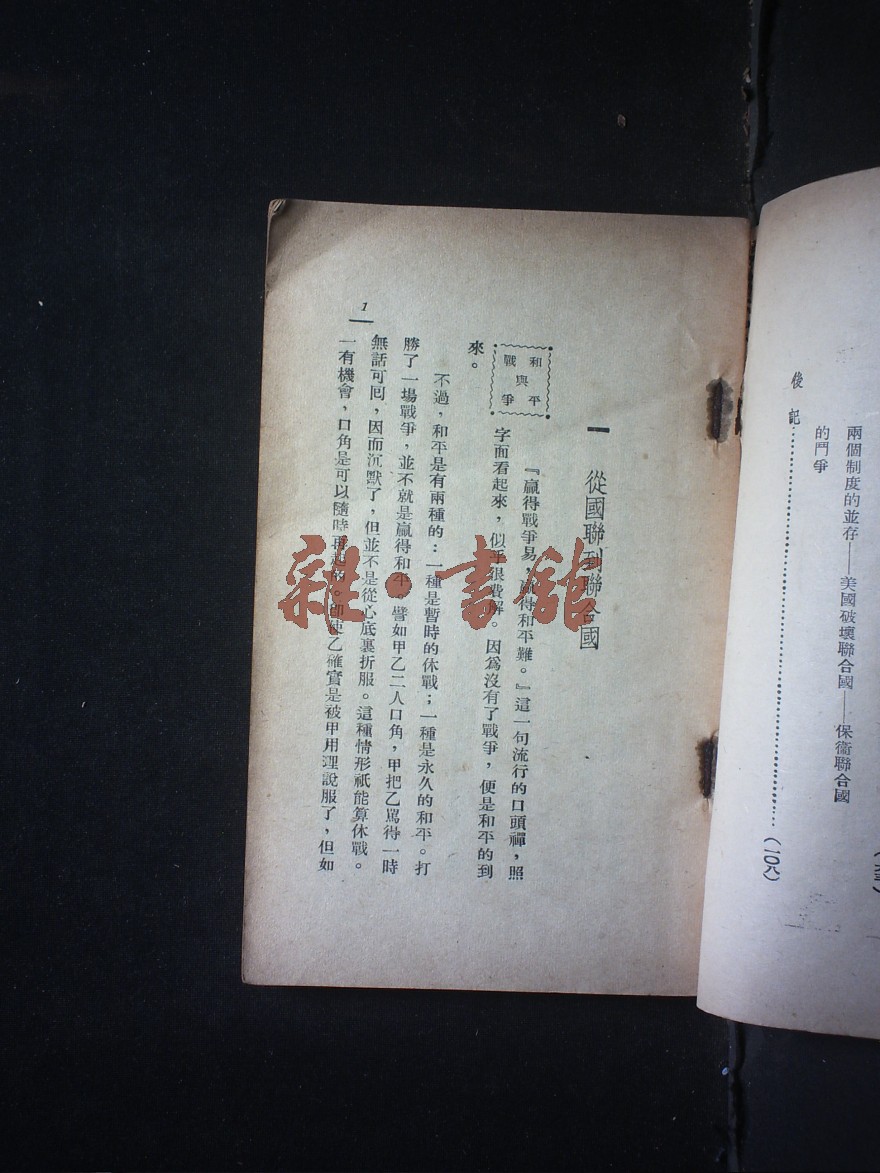 兩個制度的並存——美國破壞聯合國——保衞聯合國
的鬥爭
後記…………………………(一〇八)
一 從國聯到聯合國
和平
與
戰爭
『贏得戰爭易，贏得和平難。』這一句流行的口頭禪，照
字面看起來，似乎很費解。因爲沒有了戰爭，便是和平的到
來。
不過，和平是有兩種的：一種是暫時的休戰；一種是永久的和平。打
勝了一場戰爭，並不就是贏得和平。譬如甲乙二人口角，甲把乙罵得一時
無話可囘，因而沉默了，但並不是從心底裏折服。這種情形祇能算休戰。
一有機會，口角是可以隨時再起的。卽使乙確實是被甲用理說服了，但如
1
雜·書館